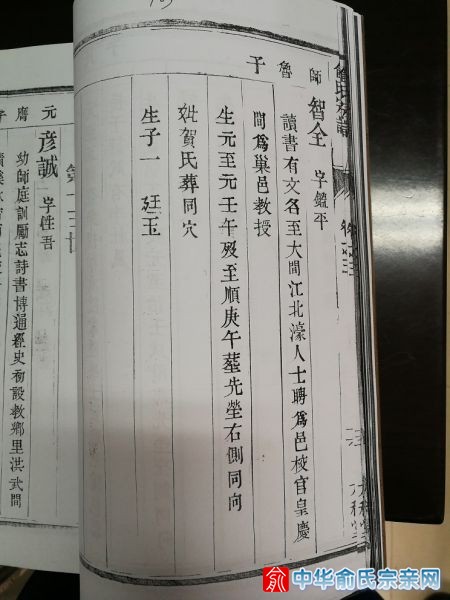 師魯子
智全 字鑑平
讀書有文名至大間江北濠人士聘爲邑校官皇慶
間爲巢邑教授
生元至元壬午歿至順庚午塟先塋右側同向
妣賀氏葬同穴
生子一 廷玉
元膺子
彦誠 字性吾
幼師庭訓勵志詩書博通經史初設教鄉里洪武間
中华俞氏宗亲网